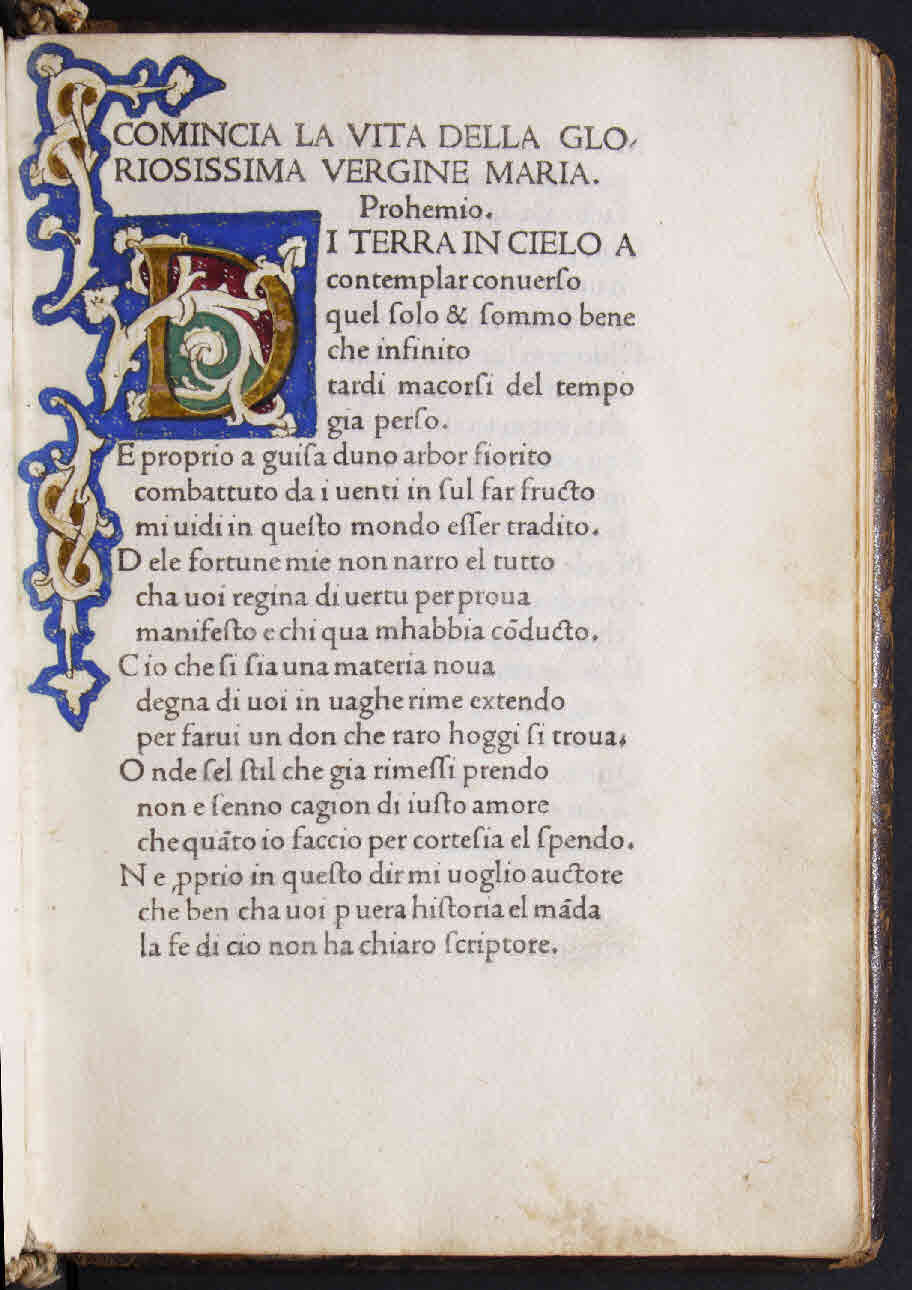 COMINCIA LA VITA DELLA GLO-
RIOSISSIMA VERGINE MARIA.
Prohemio.
DI TERRA IN CIELO A
contemplar conuerſo
quel ſolo & ſommo bene
che infinito
tardi macorſi del tempo
gia perſo.
E proprio a guiſa duno arbor fiorito
combattuto da i uenti in ſul far fructo
mi uidi in queſto mondo eſſer tradito.
D ele fortune mie non narro el tutto
cha uoi regina di uertu per proua
manifeſto e chi qua mhabbia cōducto.
C io che ſi ſia una materia noua
degna di uoi in uaghe rime extendo
per farui un don che raro hoggi ſi troua.
O nde ſel ſtil che gia rimeſſi prendo
non e ſenno cagion di iuſto amore
che quāto io faccio per corteſia el ſpendo.
N e ꝓprio in queſto dir mi uoglio auctore
che ben cha uoi p uera hiſtoria el māda
la fe di cio non ha chiaro ſcriptore.